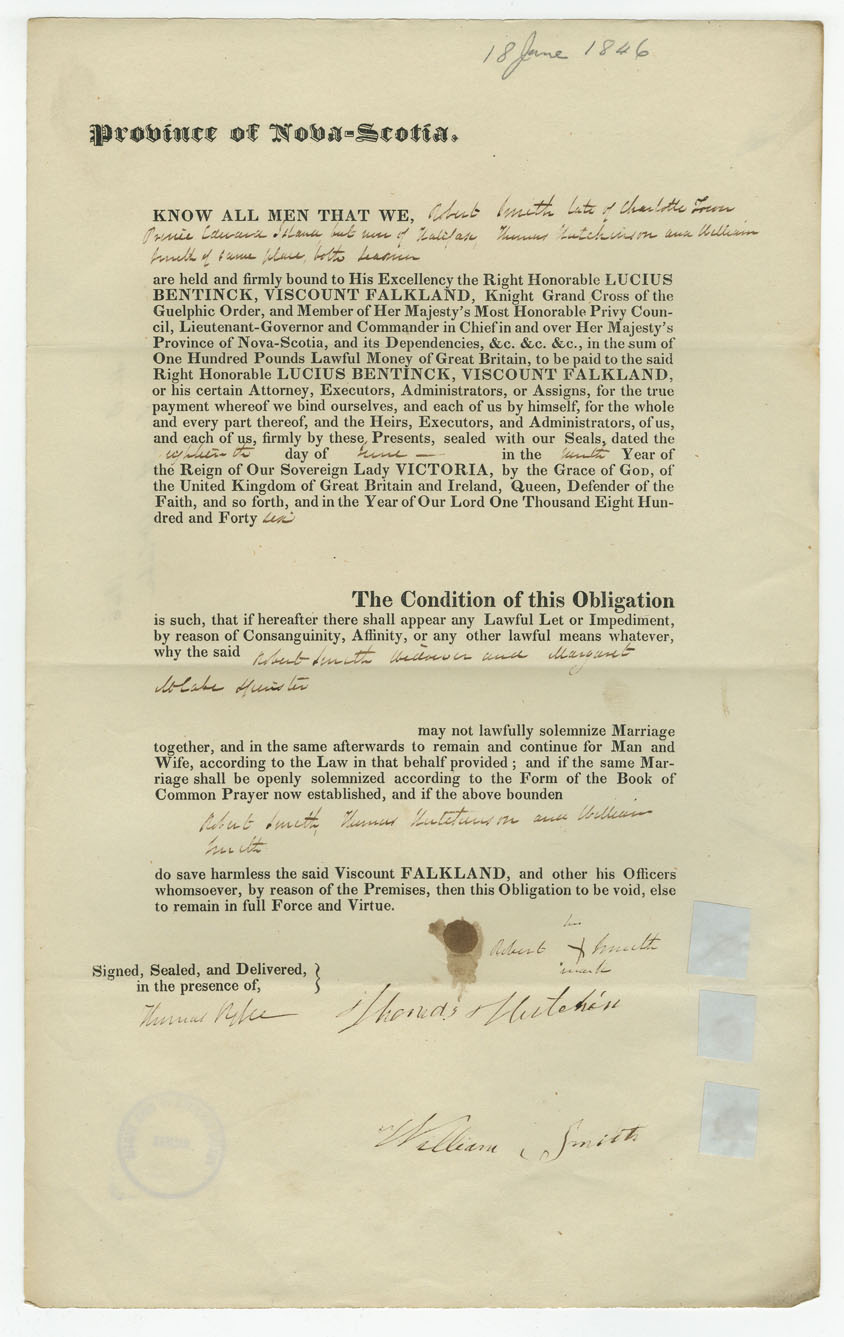 18 June 1846
Province of Nova-Scotia.
KNOW ALL MEN THAT WE, Robert Smith late of Charlotte Town
Prince Edward Island but now of Halifax, Thomas Hutchinson and William
Smith of same place, both
are held and firmly bound to His Excellency the Right Honorable LUCIUS
BENTINCK, VISCOUNT FALKLAND, Knight Grand Cross of the
Guelphic Order, and Member of Her Majesty's Most Honorable Privy Coun-
cil, Lieutenant-Governor and Commander in Chief in and over Her Majesty's
Province of Nova-Scotia, and its Dependencies, &c. &c. &c., in the sum of
One Hundred Pounds Lawful Money of Great Britain, to be paid to the said
Right Honorable LUCIUS BENTINCK, VISCOUNT FALKLAND,
or his certain Attorney, Executors, Administrators, or Assigns, for the true
payment whereof we bind ourselves, and each of us by himself, for the whole
and every part thereof, and the Heirs, Executors, and Administrators, of us,
and each of us, firmly by these Presents, sealed with our Seals, dated the
eighteenth day of June — in the tenth Year of
the Reign of Our Sovereign Lady VICTORIA, by the Grace of GOD, of
the United Kingdom of Great Britain and Ireland, Queen, Defender of the
Faith, and so forth, and in the Year of Our Lord One Thousand Eight Hun-
dred and Forty six
The Condition of this Obligation
is such, that if hereafter there shall appear any Lawful Let or Impediment,
by reason of Consanguinity, Affinity, or any other lawful means whatever,
why the said Robert Smith Widower and Margaret
McCabe Spinster
may not lawfully solemnize Marriage
together, and in the same afterwards to remain and continue for Man and
Wife, according to the Law in that behalf provided ; and if the same Mar-
riage shall be openly solemnized according to the Form of the Book of
Common Prayer now established, and if the above bounden
Robert Smith, Thomas Hutchinson and William
Smith
do save harmless the said Viscount FALKLAND, and other his Officers
whomsoever, by reason of the Premises, then this Obligation to be void, else
to remain in full Force and Virtue.
his
Robert X Smith
mark
Signed, Sealed, and Delivered,
in the presence of,
Thomas
Thomas Hutchin
William Smith